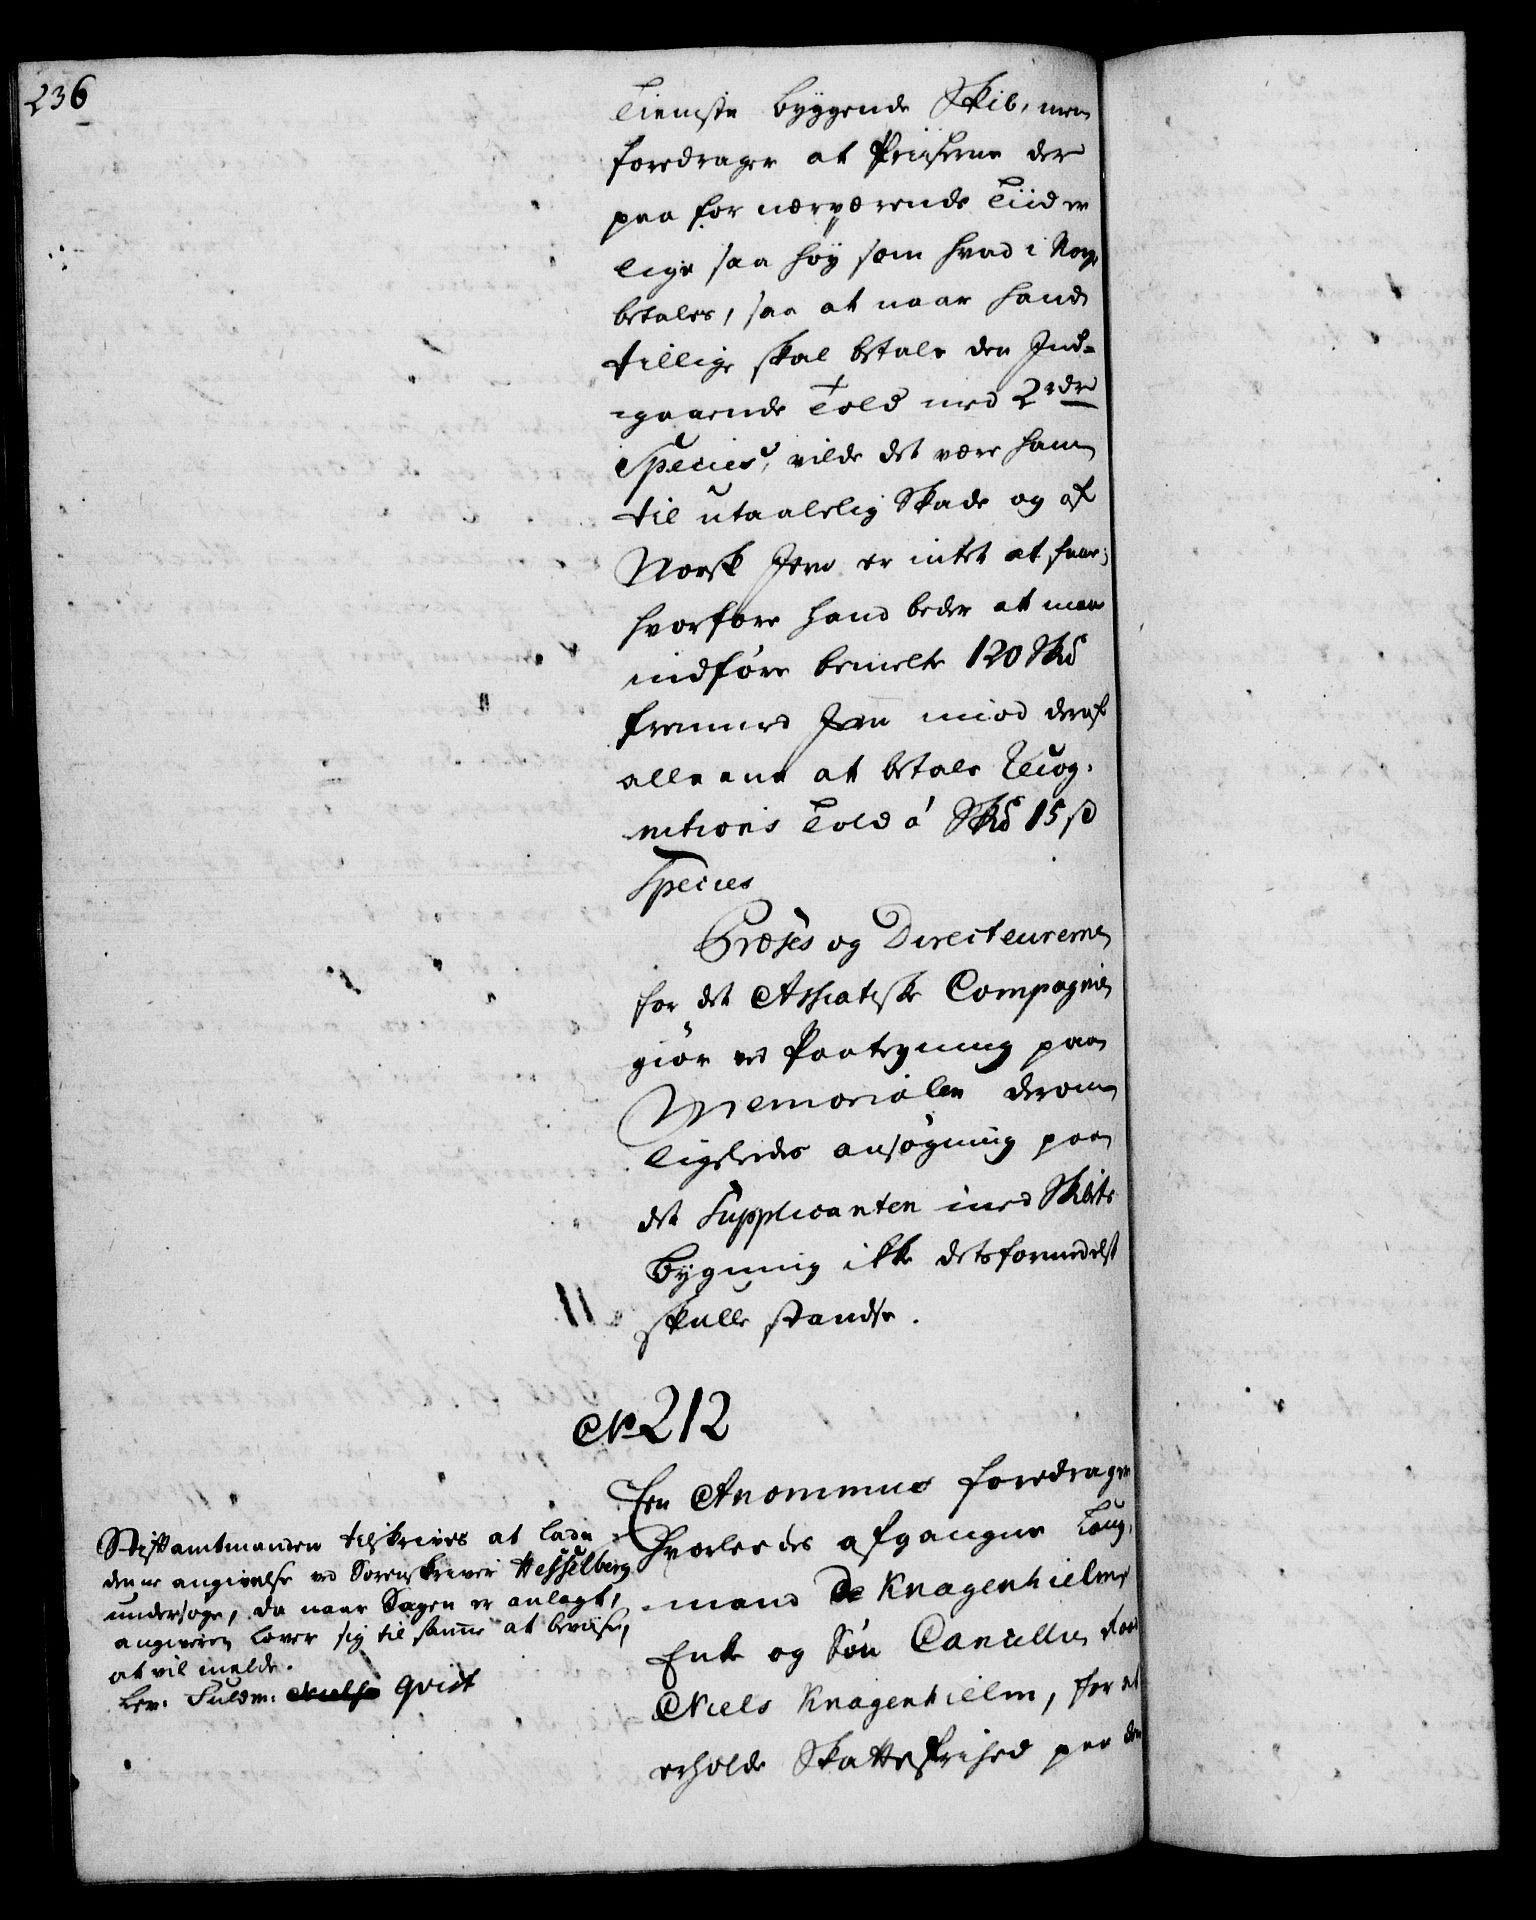 236
Tieniste byggende Skib, men
foredrager at Priiserne der
paa for nærværende Tiid er
lige saa høy som hvad i Norge
betales, saa at naar hand
tillige skal betale den Ind-
gaaende Told med 2 rdr
Species, vilde det være ham
til utaalelig Skade og af
Norsk Jern er intet at faae;
hvorfore hand beder at maae
indføre bemelte 120 Sk℔
fremmed Jern imod deraf
alleene at betale Recog-
nitions Told á Sk℔ 15 s
Species
Præses og Directeurerne
for det Assiatiske Compagnie
giør ved Paategning paa
Memorialen derom
ligeledes ansøgning paa
det Supplicanten med Skibets
bygning ikke detsformedelst
skulle standse.
No 212
Een Anonimus foredrager
hvorledes afgangne Laug-
mand de Knagenhielms
Enke og Søn Cancellie Raad
Niels Knagenhielm, for at
erholde Skatte frihed paa den
Stiftamtmanden tilskrives at lade
denne angivelse ved Sorenskriver Hesselberg
undersøge, da naar Sagen er anlagt,
angiveren lover sig til samme at beviise,
at vil melde.
Lev. Fuldm: Qvist